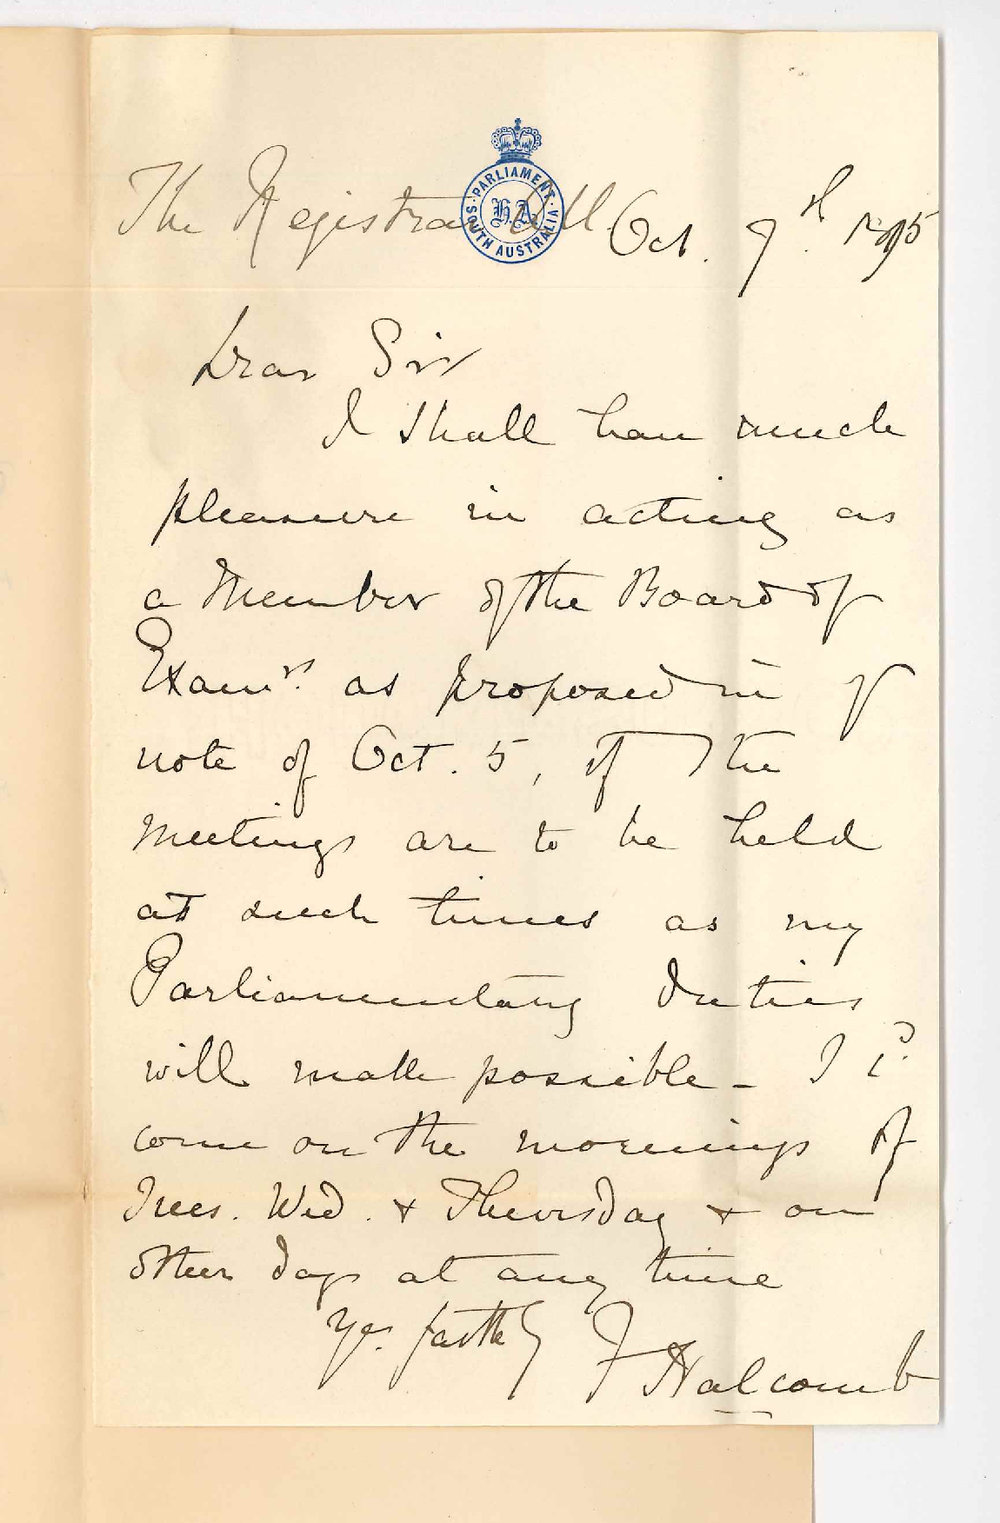 PARLIAMENT
H.A
SOUTH AUSTRALIA
The Registrar
Oct. 9th 1895
Dear Sir
I shall have much
pleasure in acting as
a Member of the Board of
Examrs. as proposed in yr
note of Oct. 5, if the
meetings are to be held
at such times as my
Parliamentary duties
will make possible - I cd.
come on the mornings of
Tues. Wed. & Thursday & on
other days at any time
Yrs. faithly
F Halcomb